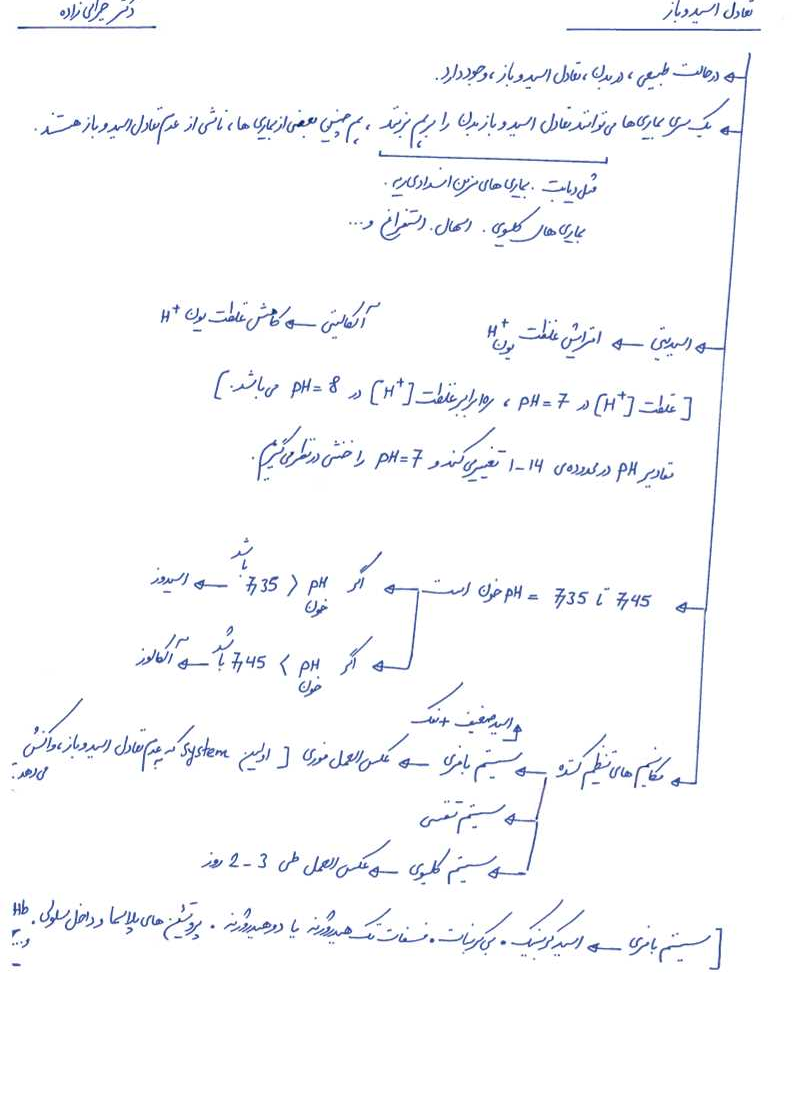 تعادل اسید و باز
دکتر چراغی زاده
← در حالت طبیعی، در بدن، تعادل اسید و باز، وجود دارد.
← یک سری بیماری‌ها می‌توانند تعادل اسید و باز بدن را برهم بزنند، هم چنین بعضی از بیماری ها، ناشی از عدم تعادل اسید و باز هستند.
مثل دیابت. بیماری های مزمن انسدادی ریه.
بیماری های کلیوی. اسهال. استفراغ و...
← اسیدیتی ← افزایش غلظت یون H+
آلکالیتی ← کاهش غلظت یون H+
[غلظت [H+] در pH = 7، ۱۰ برابر غلظت [H+] در pH = 8 می باشد.]
مقادیر pH در محدوده‌ی 14 – 1 تغییر می کند و pH = 7 را خنثی در نظر می گیریم.
← 7,45 تا 7,35 = pH خون است ← اگر pH خون < 7,35 باشد ← اسیدوز
← اگر pH خون > 7,45 باشد ← آلکالوز
اسید ضعیف + نمک
← مکانیسم های تنظیم کننده ← سیستم بافری ← عکس العمل فوری [اولین system که به عدم تعادل اسید و باز، واکنش می دهد.
← سیستم تنفسی
← سیستم کلیوی ← عکس العمل طی 3 – 2 روز
[سیستم بافری ← اسید کربنیک. بی کربنات. فسفات تک هیدروژنه یا دو هیدروژنه. پروتئین های پلاسما و داخل سلولی. Hb و...